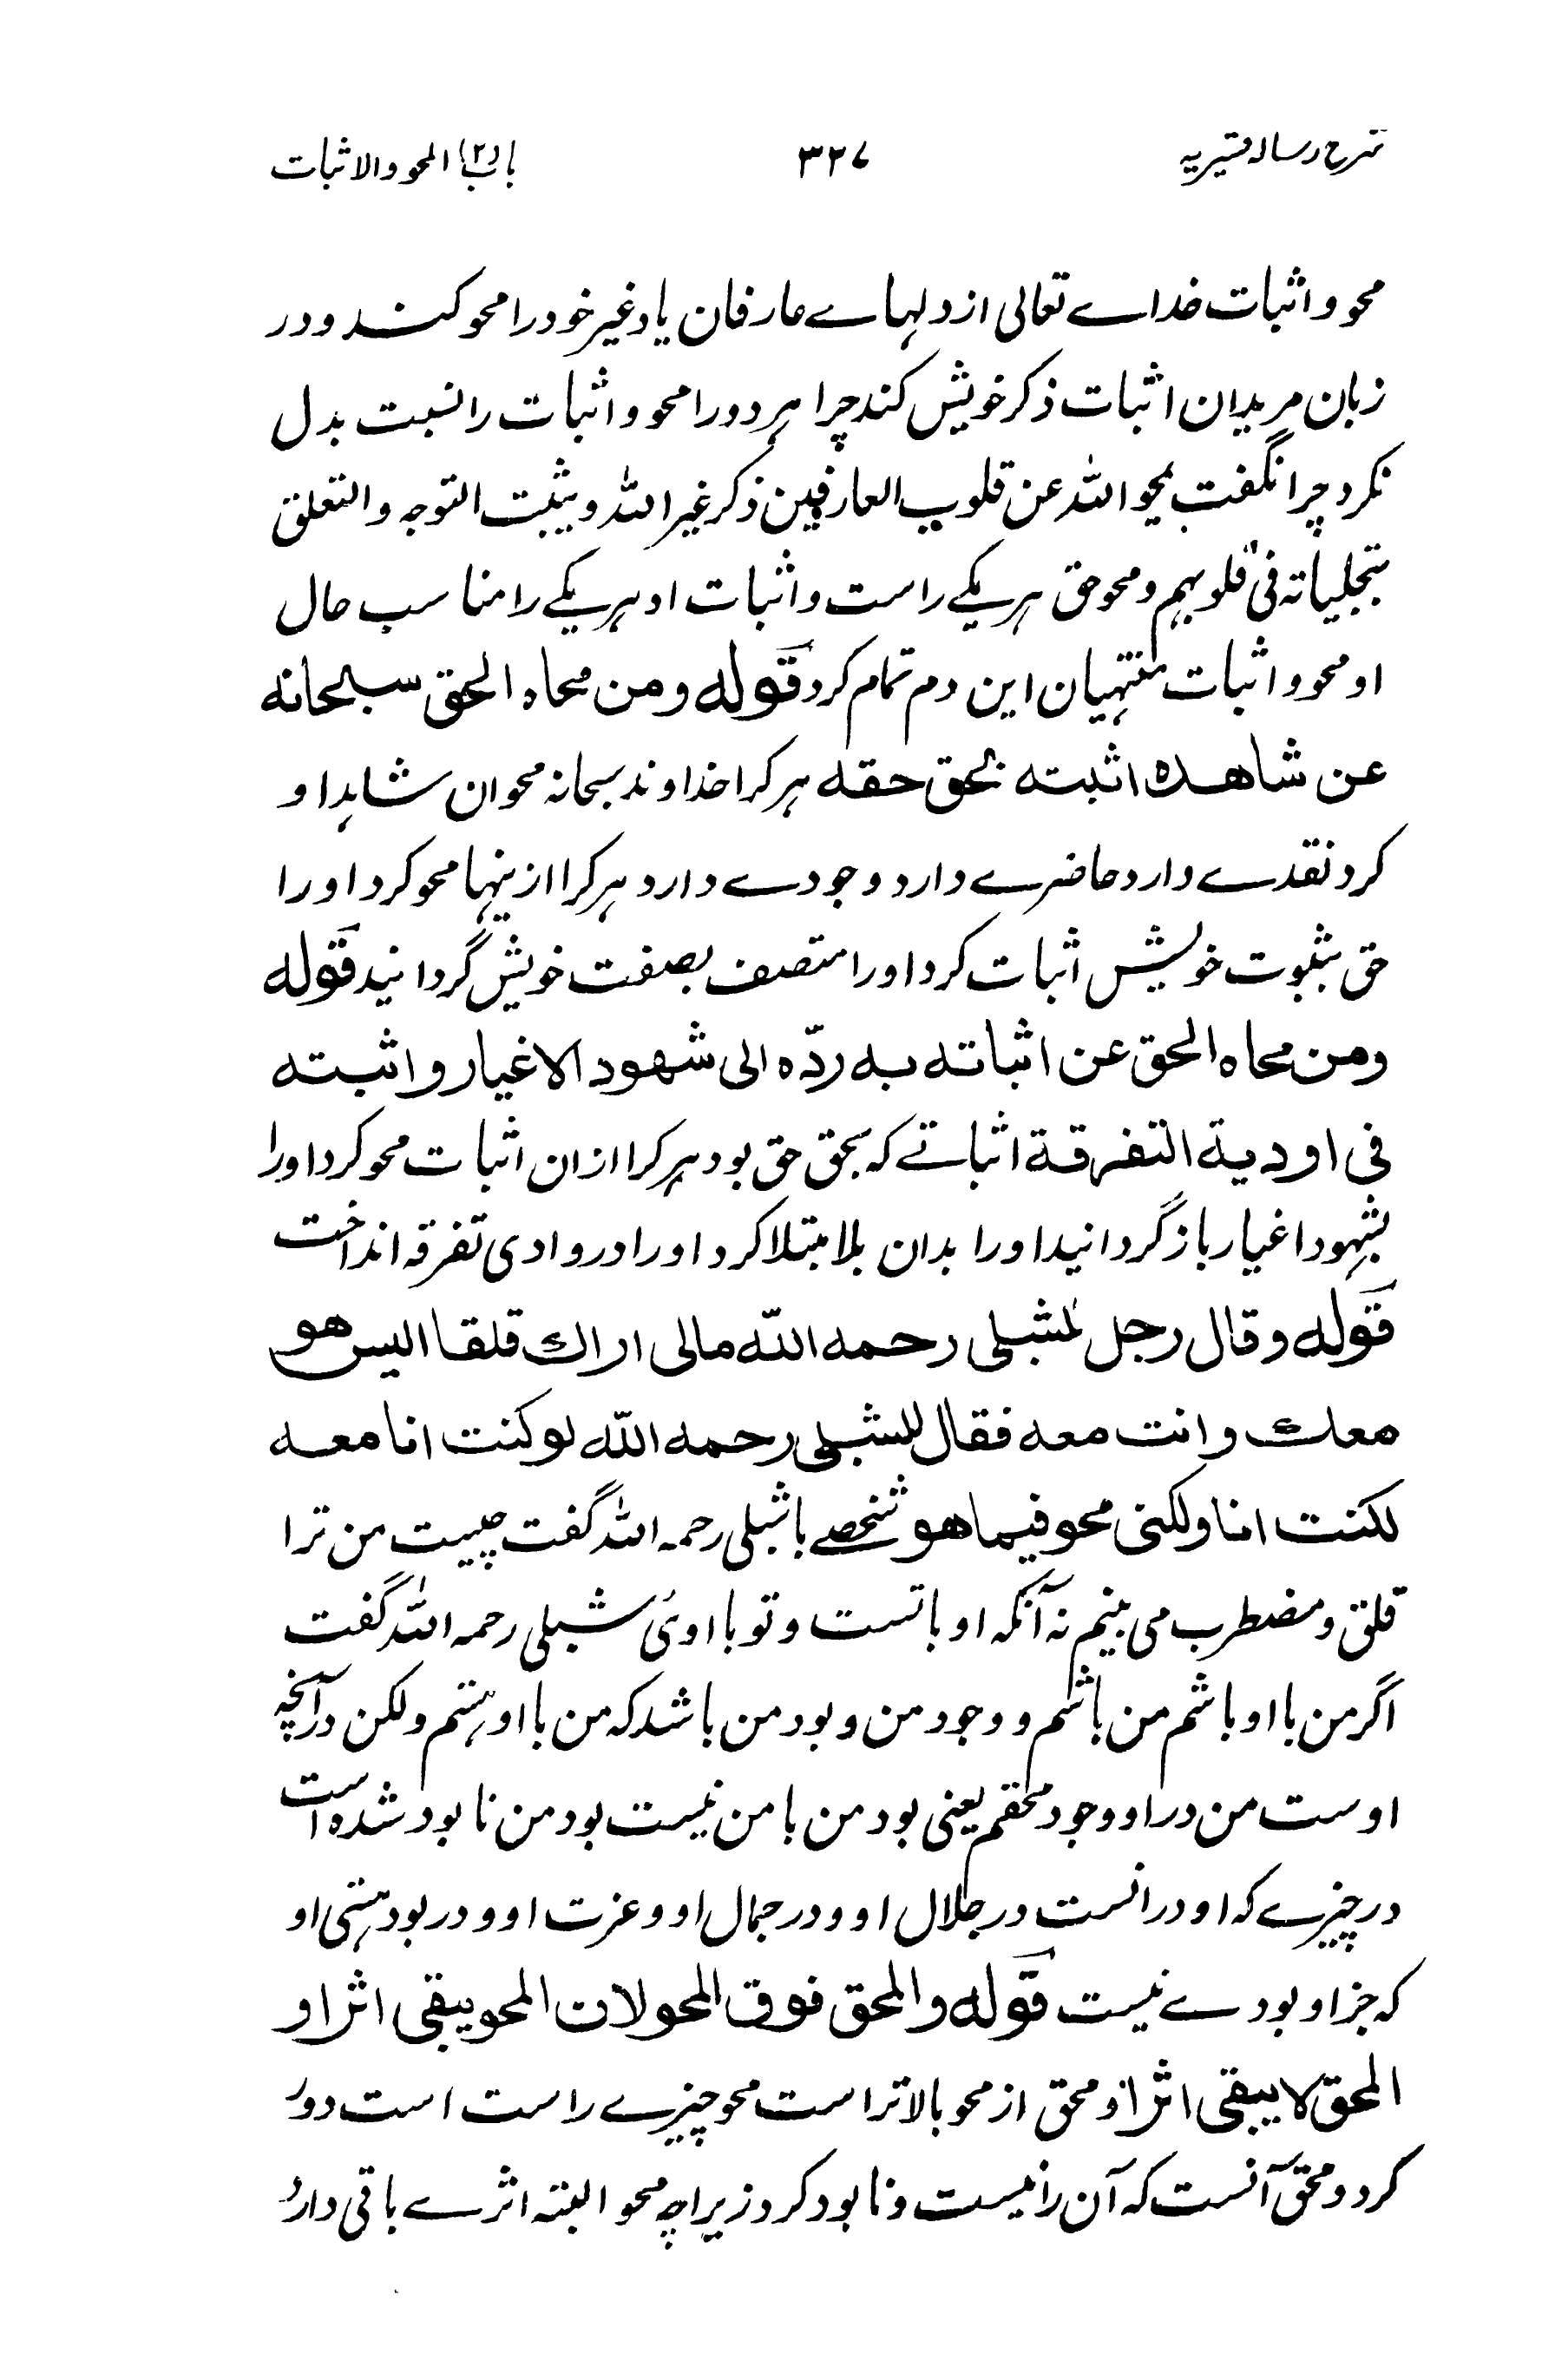 شرح رساله قشیریه ۳۲۷ باب (۲) المحو والاثبات
محو و اثبات خداے تعالی از دلہاے عارفان یاد غیر خود را محو کند و در
زبان مریدان اثبات ذکر خویش کند چرا ہر دو را محو و اثبات را نسبت بدل
نکرد چرا نگفت یمحو اللہ عن قلوب العارفین ذکر غیر اللہ و یثبت التوجہ والتعلق
بتجلیاتہ فی قلوبہم و محو حق ہر یکے راست و اثبات او ہر یکے را مناسب حال
او محو و اثبات منتہیان این دم تمام کرد قوله ومن محاه الحق سبحانه
عن شاهده اثبته بحق حقه ہر کرا خداوند سبحانہ محوان شاہد او
کرد نقدے دارد حاضرے دارد وجودے دارد ہر کرا ازینہا محو کرد او را
حق بثبوت خویش اثبات کرد او را متصف بصفت خویش گردانید قوله
ومن محاه الحق عن اثباته به ردّه الى شهود الاغيار واثبته
فی اودية التفرقة اثباتے کہ بحق حق بود ہر کرا ازان اثبات محو کرد او را
بشہود اغیار باز گردانید او را بدان بلا مبتلا کرد او را در وادی تفرقہ انداخت
قوله وقال رجل لشبلی رحمه الله مالی اراك قلقا اليس هو
معك وانت معه فقال الشبلی رحمه الله لو كنت انا معه
لكنت انا ولكنی محو فيما هو شخصے با شبلی رحمہ اللہ گفت چیست من ترا
قلق و مضطرب می بینم نہ آنکہ او با تست و تو با اوئ شبلی رحمہ اللہ گفت
اگر من با او باشم من باشم و وجود من و بود من باشد کہ من با او ہستم ولکن در آنچہ
اوست من در او وجود محقم یعنی بود من با من نیست بود من نابود شدہ است
در چیزے کہ او درانست در جلال او و در جمال او و عزت او و در بود ہستی او
کہ جز او بودے نیست قوله والمحق فوق المحو لان المحو يبقى اثرا و
المحق لا يبقى اثرا و محق از محو بالاتر است محو چیزے راست است دور
کرد و محق آنست کہ آن را نیست و نابود کرد زیراچہ محو البتہ اثرے باقی دارد